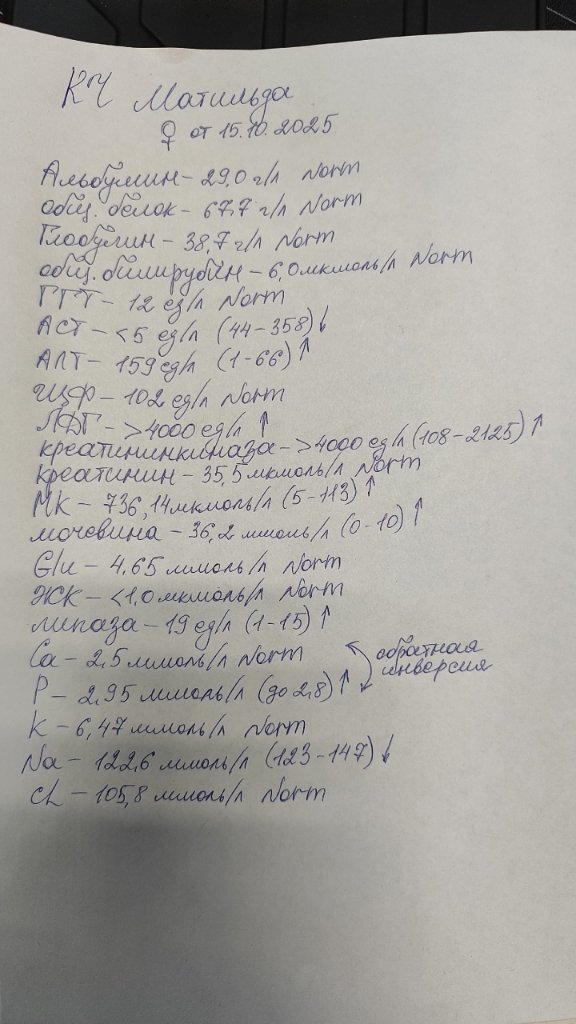 КЧ Матильда
♀ от 15.10.2025
Альбумин - 29,0 г/л Norm
общ. белок - 67,7 г/л Norm
Глобулин - 38,7 г/л Norm
общ. билирубин - 6,0 мкмоль/л Norm
ГГТ - 12 ед/л Norm
АСТ - <5 ед/л (44-358)↓
АЛТ - 159 ед/л (1-66)↑
ЩФ - 102 ед/л Norm
ЛДГ - >4000 ед/л ↑
креатининкиназа - >4000 ед/л (108-2125)↑
креатинин - 35,5 мкмоль/л Norm
МК - 736,14 мкмоль/л (5-113)↑
мочевина - 36,2 ммоль/л (0-10)↑
Glu - 4,65 ммоль/л Norm
ЖК - <1,0 мкмоль/л Norm
липаза - 19 ед/л (1-15)↑
Ca - 2,5 ммоль/л Norm
обратная
инверсия
P - 2,95 ммоль/л (до 2,8)↑
K - 6,47 ммоль/л Norm
Na - 122,6 ммоль/л (123-147)↓
CL - 105,8 ммоль/л Norm